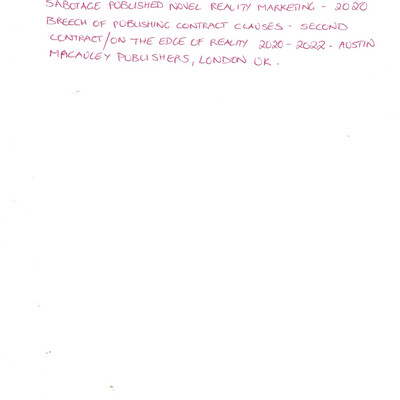 SABOTAGE PUBLISHED NOVEL REALITY MARKETING - 2020
BREECH OF PUBLISHING CONTRACT CLAUSES - SECOND
CONTRACT/ON THE EDGE OF REALITY 2020-2022 - AUSTIN
MACAULEY PUBLISHERS, LONDON UK.